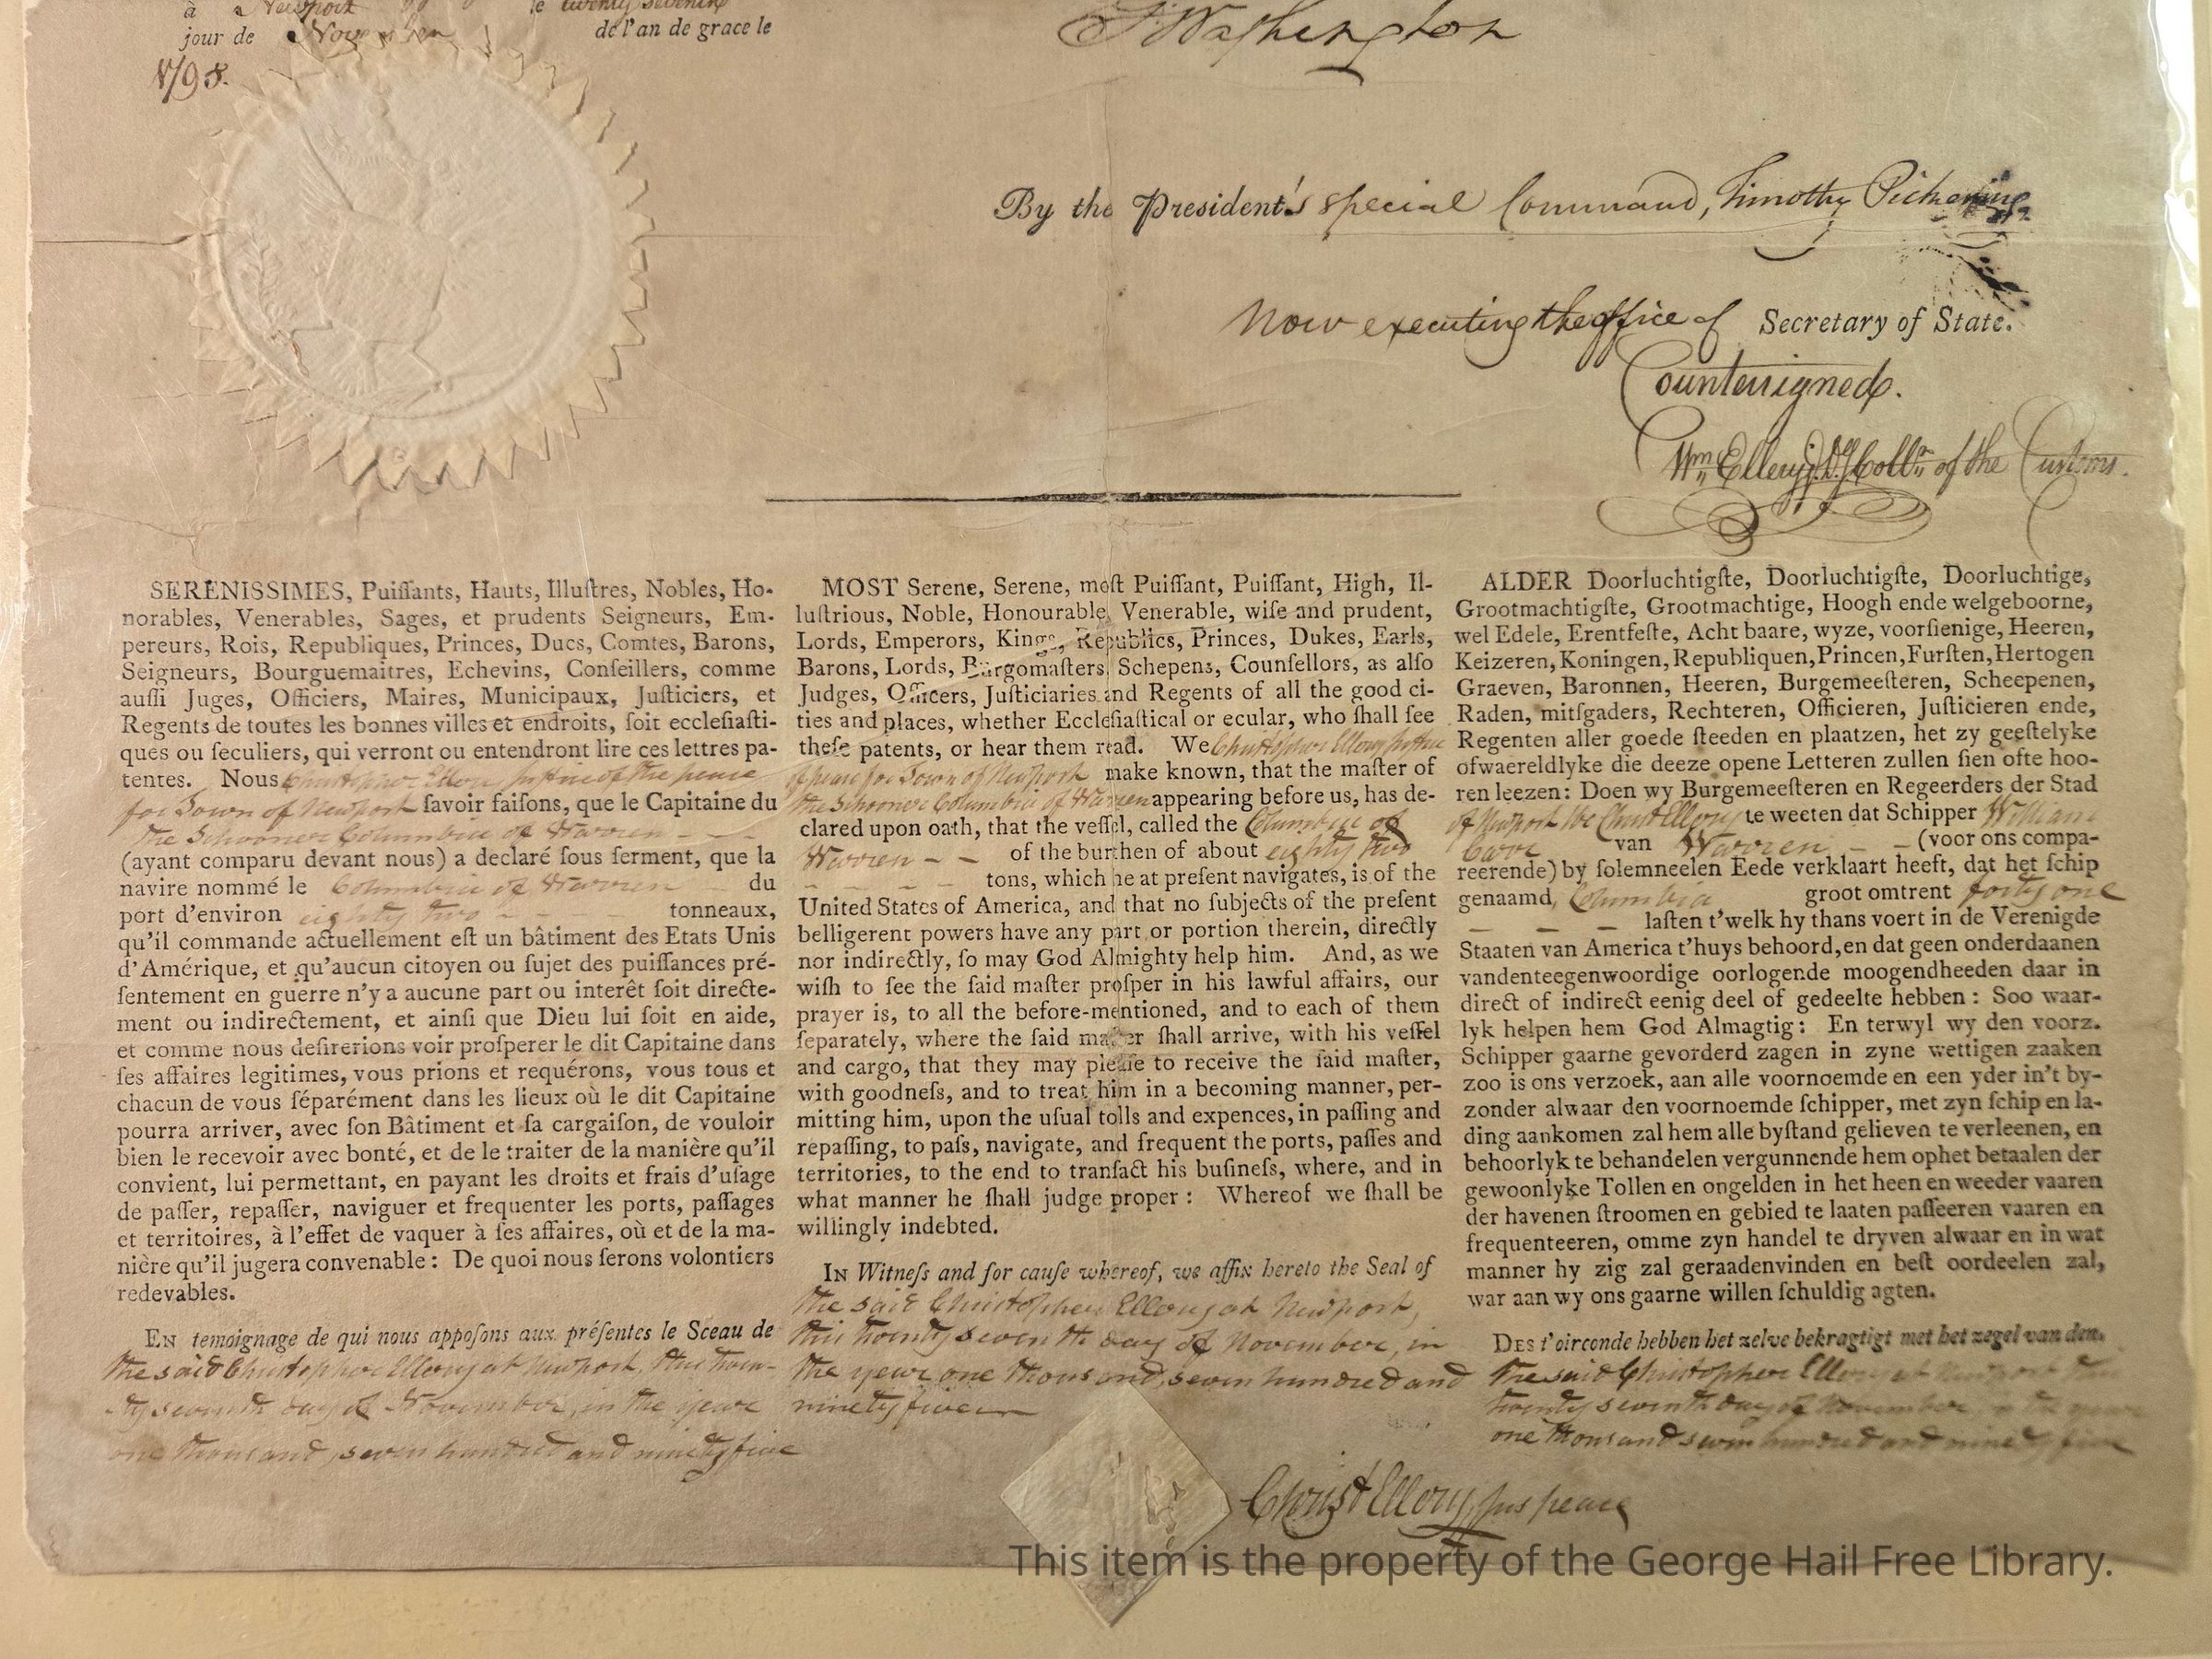 à Newport le twenty seventh
jour de November de l'an de grace le
1795.
G Washington
By the President's special Command, Timothy Pickering
Now executing the office of Secretary of State.
Countersigned.
Wm Ellery Collr of the Customs.
SERENISSIMES, Puiſſants, Hauts, Illuſtres, Nobles, Ho-
norables, Venerables, Sages, et prudents Seigneurs, Em-
pereurs, Rois, Republiques, Princes, Ducs, Comtes, Barons,
Seigneurs, Bourguemaitres, Echevins, Conſeillers, comme
auſſi Juges, Officiers, Maires, Municipaux, Juſticiers, et
Regents de toutes les bonnes villes et endroits, ſoit eccleſiaſti-
ques ou ſeculiers, qui verront ou entendront lire ces lettres pa-
tentes. Nous Christopher Ellery Justice of the peace
for Town of Newport ſavoir faiſons, que le Capitaine du
the Schooner Columbia of Warren - -
(ayant comparu devant nous) a declaré ſous ſerment, que la
navire nommé le Columbia of Warren - du
port d'environ eighty two - - - tonneaux,
qu'il commande actuellement eſt un bâtiment des Etats Unis
d'Amérique, et qu'aucun citoyen ou ſujet des puiſſances pré-
ſentement en guerre n'y a aucune part ou interêt ſoit directe-
ment ou indirectement, et ainſi que Dieu lui ſoit en aide,
et comme nous deſirerions voir proſperer le dit Capitaine dans
ſes affaires legitimes, vous prions et requérons, vous tous et
chacun de vous ſéparément dans les lieux où le dit Capitaine
pourra arriver, avec ſon Bâtiment et ſa cargaiſon, de vouloir
bien le recevoir avec bonté, et de le traiter de la manière qu'il
convient, lui permettant, en payant les droits et frais d'uſage
de paſſer, repaſſer, naviguer et frequenter les ports, paſſages
et territoires, à l'effet de vaquer à ſes affaires, où et de la ma-
nière qu'il jugera convenable : De quoi nous ſerons volontiers
redevables.
EN temoignage de qui nous appoſons aux préſentes le Sceau de
the said Christopher Ellery at Newport, this twen-
ty seventh day of November, in the year
one thousand, seven hundred and ninety five
MOST Serene, Serene, moſt Puiſſant, Puiſſant, High, Il-
luſtrious, Noble, Honourable, Venerable, wiſe and prudent,
Lords, Emperors, Kings, Republics, Princes, Dukes, Earls,
Barons, Lords, Burgomaſters, Schepens, Counſellors, as alſo
Judges, Officers, Juſticiaries and Regents of all the good ci-
ties and places, whether Eccleſiaſtical or ecular, who ſhall ſee
theſe patents, or hear them read. We Christopher Ellery Justice
of peace for Town of Newport make known, that the maſter of
the Schooner Columbia of Warren appearing before us, has de-
clared upon oath, that the veſſel, called the Columbia of
Warren - - of the burthen of about eighty two
- - - - tons, which he at preſent navigates, is of the
United States of America, and that no ſubjects of the preſent
belligerent powers have any part or portion therein, directly
nor indirectly, ſo may God Almighty help him. And, as we
wiſh to ſee the ſaid maſter proſper in his lawful affairs, our
prayer is, to all the before-mentioned, and to each of them
ſeparately, where the ſaid maſter ſhall arrive, with his veſſel
and cargo, that they may pleaſe to receive the ſaid maſter,
with goodneſs, and to treat him in a becoming manner, per-
mitting him, upon the uſual tolls and expences, in paſſing and
repaſſing, to paſs, navigate, and frequent the ports, paſſes and
territories, to the end to tranſact his buſineſs, where, and in
what manner he ſhall judge proper : Whereof we ſhall be
willingly indebted.
IN Witneſs and for cauſe whereof, we affix hereto the Seal of
the said Christopher Ellery at Newport,
this twenty seventh day of November, in
the year one thousand, seven hundred and
ninety five
ALDER Doorluchtigſte, Doorluchtigſte, Doorluchtige,
Grootmachtigſte, Grootmachtige, Hoogh ende welgeboorne,
wel Edele, Erentfeſte, Acht baare, wyze, voorſienige, Heeren,
Keizeren, Koningen, Republiquen, Princen, Furſten, Hertogen
Graeven, Baronnen, Heeren, Burgemeeſteren, Scheepenen,
Raden, mitſgaders, Rechteren, Officieren, Juſticieren ende,
Regenten aller goede ſteeden en plaatzen, het zy geeſtelyke
ofwaereldlyke die deeze opene Letteren zullen ſien ofte hoo-
ren leezen: Doen wy Burgemeeſteren en Regeerders der Stad
of Newport We Christ Ellery te weeten dat Schipper William
Carr van Warren - - (voor ons compa-
reerende) by ſolemneelen Eede verklaart heeft, dat het ſchip
genaamd, Columbia groot omtrent forty one
- - - laſten t'welk hy thans voert in de Verenigde
Staaten van America t'huys behoord, en dat geen onderdaanen
vandenteegenwoordige oorlogende moogendheeden daar in
direct of indirect eenig deel of gedeelte hebben : Soo waar-
lyk helpen hem God Almagtig : En terwyl wy den voorz.
Schipper gaarne gevorderd zagen in zyne wettigen zaaken
zoo is ons verzoek, aan alle voornoemde en een yder in't by-
zonder alwaar den voornoemde ſchipper, met zyn ſchip en la-
ding aankomen zal hem alle byſtand gelieven te verleenen, en
behoorlyk te behandelen vergunnende hem ophet betaalen der
gewoonlyke Tollen en ongelden in het heen en weeder vaaren
der havenen ſtroomen en gebied te laaten paſſeeren vaaren en
frequenteeren, omme zyn handel te dryven alwaar en in wat
manner hy zig zal geraadenvinden en beſt oordeelen zal,
war aan wy ons gaarne willen ſchuldig agten.
DES t'oirconde hebben het zelve bekragtigt met het zegel van den.
the said Christopher Ellery at Newport this
twenty seventh day of November in the year
one thousand seven hundred and ninety five
Christ Ellery, Jus peace
This item is the property of the George Hail Free Library.